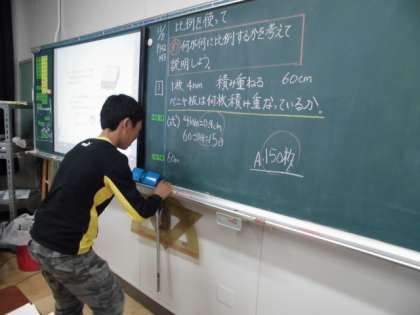 比例を使って
何が何に比例するかを考えて
説明しよう。
1
1枚 4mm 積み重ねる 60cm
ベニヤ板は何枚積み重なっているか。
(式) 4mm=0.4cm
60÷0.4=150
A.150枚